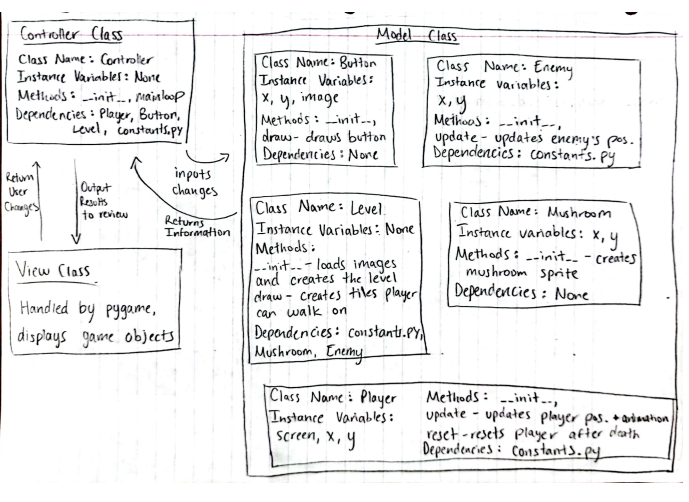 Controller Class
Class Name: Controller
Instance Variables: None
Methods: __init__, mainloop
Dependencies: Player, Button,
Level, constants.py
Return
User
Changes
Output
Results
to review
inputs
changes
Returns
Information
View Class
Handled by pygame,
displays game objects
Model Class
Class Name: Button
Instance Variables:
x, y, image
Methods: __init__,
draw - draws button
Dependencies: None
Class Name: Enemy
Instance variables:
x, y
Methods: __init__,
update - updates enemy's pos.
Dependencies: constants.py
Class Name: Level
Instance Variables: None
Methods:
__init__ - loads images
and creates the level
draw - creates tiles player
can walk on
Dependencies: constants.py,
Mushroom, Enemy
Class Name: Mushroom
Instance variables: x, y
Methods: __init__ - creates
mushroom sprite
Dependencies: None
Class Name: Player
Instance Variables:
screen, x, y
Methods: __init__,
update - updates player pos. + animation
reset - resets player after death
Dependencies: constants.py